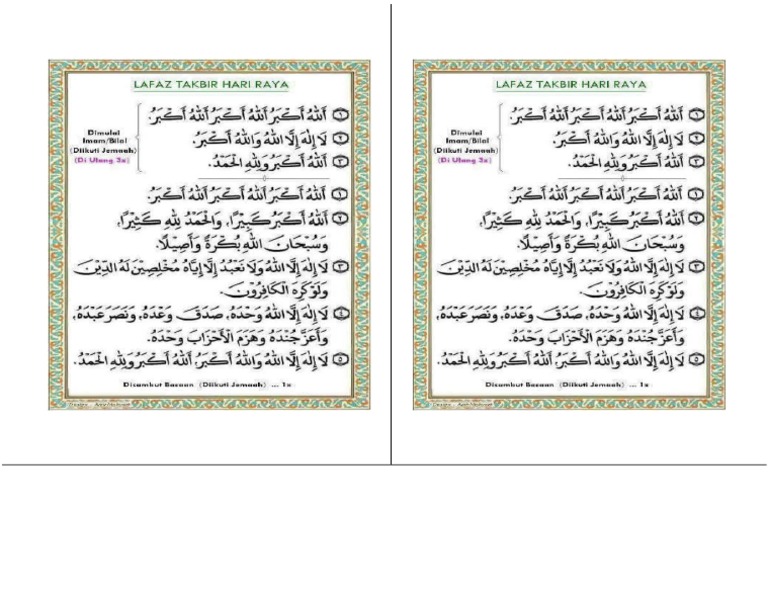 LAFAZ TAKBIR HARI RAYA
Dimulai
Imam/Bilal
(Diikuti Jemaah)
(Di Ulang 3x)
١ اَللهُ أَكْبَرُ اَللهُ أَكْبَرُ اَللهُ أَكْبَرُ.
٢ لَا إِلٰهَ إِلَّا اللهُ وَاللهُ أَكْبَرُ.
٣ اَللهُ أَكْبَرُ وَلِلّٰهِ الْحَمْدُ.
١ اَللهُ أَكْبَرُ اَللهُ أَكْبَرُ اَللهُ أَكْبَرُ.
٢ اَللهُ أَكْبَرُ كَبِيْرًا، وَالْحَمْدُ لِلّٰهِ كَثِيْرًا،
وَسُبْحَانَ اللهِ بُكْرَةً وَأَصِيْلًا.
٣ لَا إِلٰهَ إِلَّا اللهُ وَلَا نَعْبُدُ إِلَّا إِيَّاهُ مُخْلِصِيْنَ لَهُ الدِّيْنَ
وَلَوْ كَرِهَ الْكَافِرُوْنَ.
٤ لَا إِلٰهَ إِلَّا اللهُ وَحْدَهُ، صَدَقَ وَعْدَهُ، وَنَصَرَ عَبْدَهُ،
وَأَعَزَّ جُنْدَهُ وَهَزَمَ الْأَحْزَابَ وَحْدَهُ.
٥ لَا إِلٰهَ إِلَّا اللهُ وَاللهُ أَكْبَرُ، اَللهُ أَكْبَرُ وَلِلّٰهِ الْحَمْدُ.
Disambut Bacaan (Diikuti Jemaah) ... 1x
LAFAZ TAKBIR HARI RAYA
Dimulai
Imam/Bilal
(Diikuti Jemaah)
(Di Ulang 3x)
١ اَللهُ أَكْبَرُ اَللهُ أَكْبَرُ اَللهُ أَكْبَرُ.
٢ لَا إِلٰهَ إِلَّا اللهُ وَاللهُ أَكْبَرُ.
٣ اَللهُ أَكْبَرُ وَلِلّٰهِ الْحَمْدُ.
١ اَللهُ أَكْبَرُ اَللهُ أَكْبَرُ اَللهُ أَكْبَرُ.
٢ اَللهُ أَكْبَرُ كَبِيْرًا، وَالْحَمْدُ لِلّٰهِ كَثِيْرًا،
وَسُبْحَانَ اللهِ بُكْرَةً وَأَصِيْلًا.
٣ لَا إِلٰهَ إِلَّا اللهُ وَلَا نَعْبُدُ إِلَّا إِيَّاهُ مُخْلِصِيْنَ لَهُ الدِّيْنَ
وَلَوْ كَرِهَ الْكَافِرُوْنَ.
٤ لَا إِلٰهَ إِلَّا اللهُ وَحْدَهُ، صَدَقَ وَعْدَهُ، وَنَصَرَ عَبْدَهُ،
وَأَعَزَّ جُنْدَهُ وَهَزَمَ الْأَحْزَابَ وَحْدَهُ.
٥ لَا إِلٰهَ إِلَّا اللهُ وَاللهُ أَكْبَرُ، اَللهُ أَكْبَرُ وَلِلّٰهِ الْحَمْدُ.
Disambut Bacaan (Diikuti Jemaah) ... 1x